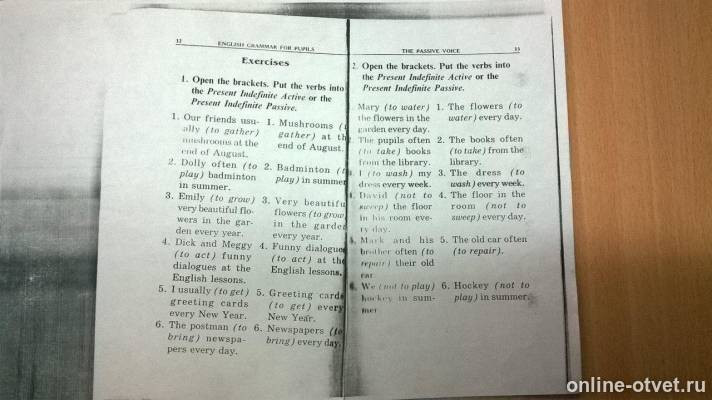 12
ENGLISH GRAMMAR FOR PUPILS
Exercises
1. Open the brackets. Put the verbs into
the Present Indefinite Active or the
Present Indefinite Passive.
1. Our friends usu-
ally (to gather)
mushrooms at the
end of August.
2. Dolly often (to
play) badminton
in summer.
3. Emily (to grow)
very beautiful flo-
wers in the gar-
den every year.
4. Dick and Meggy
(to act) funny
dialogues at the
English lessons.
5. I usually (to get)
greeting cards
every New Year.
6. The postman (to
bring) newspa-
pers every day.
1. Mushrooms (
gather) at th
end of August.
2. Badminton (
play) in summer
3. Very beautifu
flowers (to grow
in the garde
every year.
4. Funny dialogue
(to act) at the
English lessons.
5. Greeting card
(to get) every
New Year.
6. Newspapers (to
bring) every day.
THE PASSIVE VOICE
13
2. Open the brackets. Put the verbs into
the Present Indefinite Active or the
Present Indefinite Passive.
Mary (to water)
the flowers in the
garden every day.
The pupils often
(to take) books
from the library.
I (to wash) my
dress every week.
David (not to
sweep) the floor
in his room eve-
ry day.
Mark and his
brother often (to
repair) their old
car.
We (not to play)
hockey in sum-
mer
1. The flowers (to
water) every day.
2. The books often
(to take) from the
library.
3. The dress (to
wash) every week.
4. The floor in the
room (not to
sweep) every day.
5. The old car often
(to repair).
6. Hockey (not to
play) in summer.
online-otvet.ru